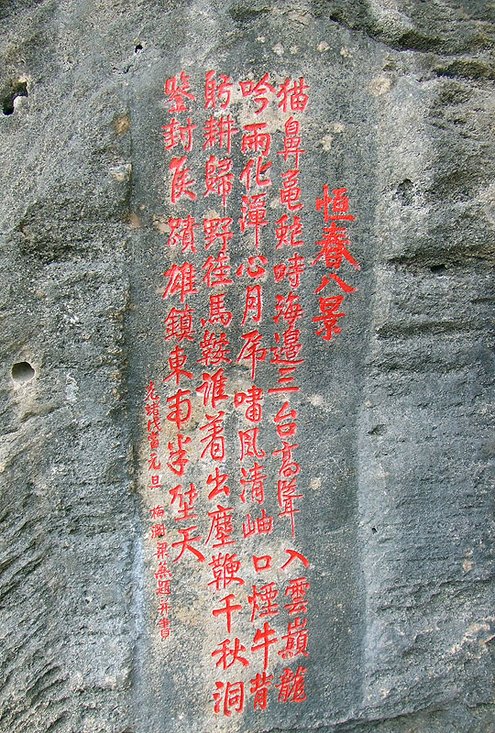 恒春八景
猫鼻龜蛇峙海邊三台高聳入雲巔龍
吟雨化潭心月虎嘯風清岫口煙牛背
躬耕歸野徑馬鞍誰着出塵鞭千秋洞
鑿封侯蹟雄鎮東南半壁天
光緒戊寅元旦 梁燕題并書